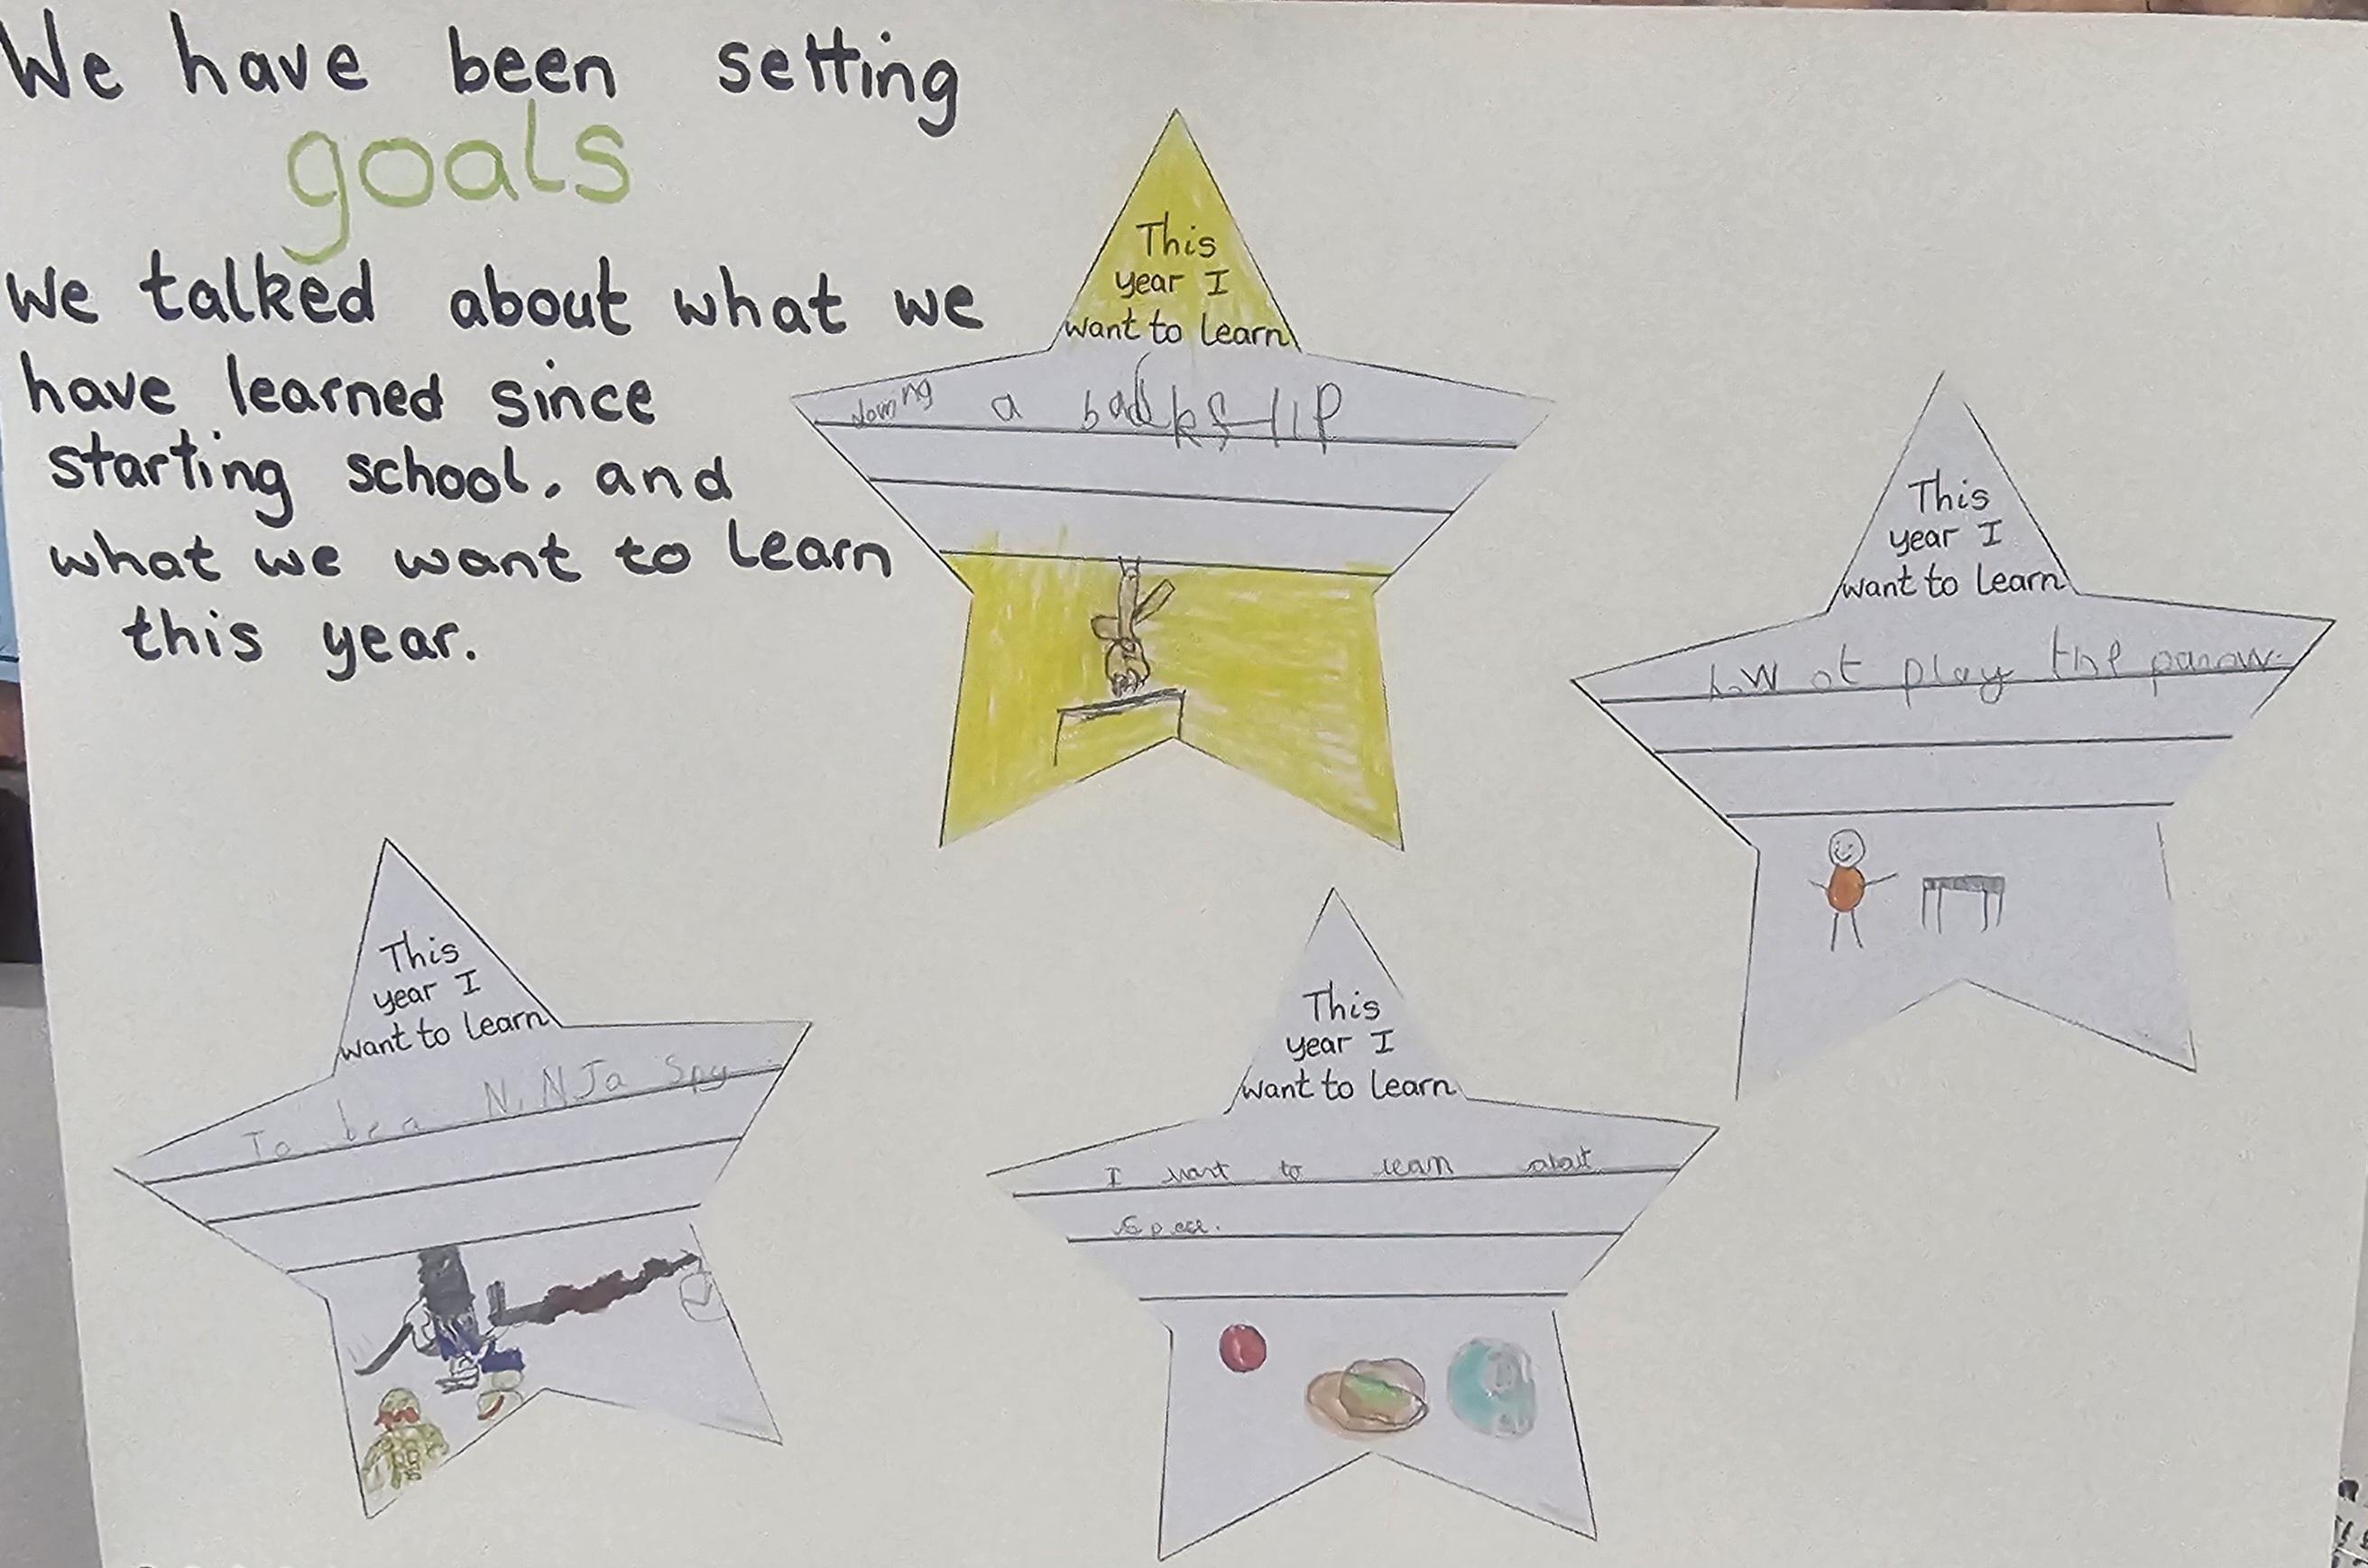 We have been setting
goals
We talked about what we
have learned since
starting school, and
what we want to learn
this year.
This
year I
want to learn
doing a backflip
This
year I
want to learn
how ot play the panow.
This
year I
want to learn
To be a NiNJa Spy
This
year I
want to learn
I want to lean about
Space.